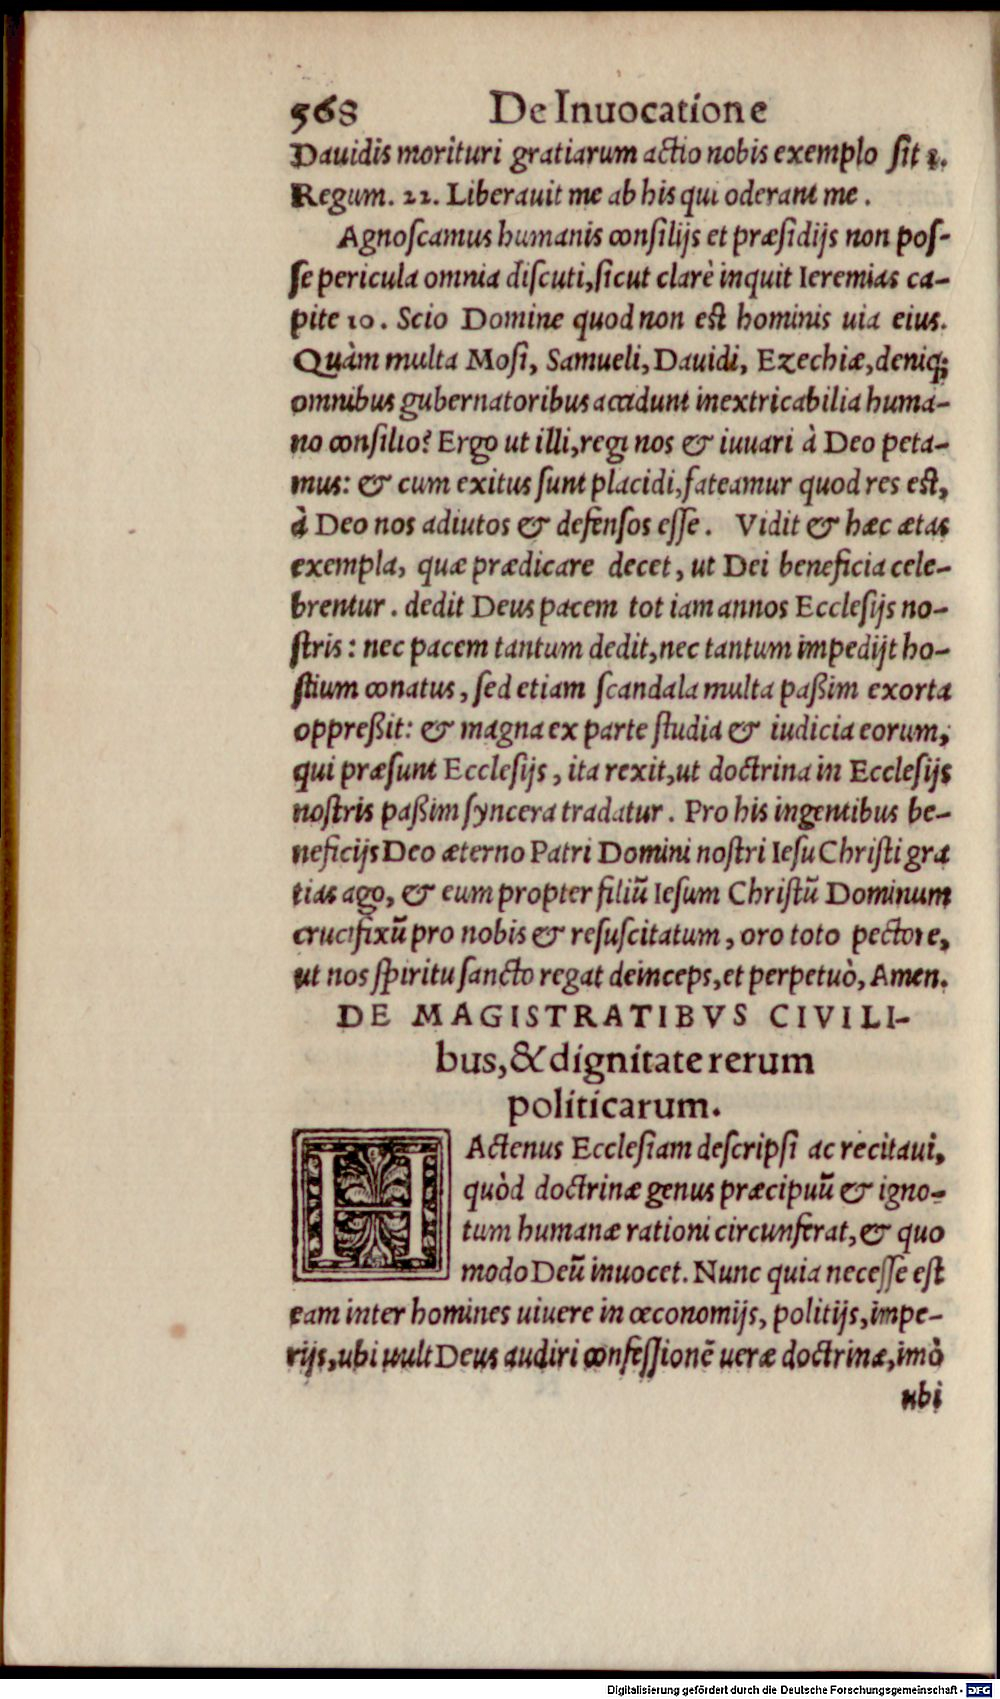 568 De Inuocatione
Dauidis morituri gratiarum actio nobis exemplo ſit 2.
Regum. 22. Liberauit me ab his qui oderant me.
Agnoſcamus humanis conſilijs et præſidijs non poſ-
ſe pericula omnia diſcuti, ſicut clarè inquit Ieremias ca-
pite 10. Scio Domine quod non eſt hominis uia eius.
Quàm multa Moſi, Samueli, Dauidi, Ezechiæ, deniq;
omnibus gubernatoribus accidunt inextricabilia huma-
no conſilio? Ergo ut illi, regi nos & iuuari à Deo peta-
mus: & cum exitus ſunt placidi, fateamur quod res eſt,
à Deo nos adiutos & defenſos eſſe. Vidit & hæc ætas
exempla, quæ prædicare decet, ut Dei beneficia cele-
brentur. dedit Deus pacem tot iam annos Eccleſijs no-
ſtris: nec pacem tantum dedit, nec tantum impedijt ho-
ſtium conatus, ſed etiam ſcandala multa paßim exorta
oppreßit: & magna ex parte ſtudia & iudicia eorum,
qui præſunt Eccleſijs, ita rexit, ut doctrina in Eccleſijs
noſtris paßim ſyncera tradatur. Pro his ingentibus be-
neficijs Deo æterno Patri Domini noſtri Ieſu Chriſti gra
tias ago, & eum propter filiũ Ieſum Chriſtũ Dominum
crucifixũ pro nobis & reſuſcitatum, oro toto pectore,
ut nos ſpiritu ſancto regat deinceps, et perpetuò, Amen.
DE MAGISTRATIBVS CIVILI-
bus, & dignitate rerum
politicarum.
HActenus Eccleſiam deſcripſi ac recitaui,
quòd doctrinæ genus præcipuũ & igno-
tum humanæ rationi circunferat, & quo
modo Deũ inuocet. Nunc quia neceſſe eſt
eam inter homines uiuere in œconomijs, politijs, impe-
rijs, ubi uult Deus audiri confeſſionẽ ueræ doctrinæ, imò
ubi
Digitalisierung gefördert durch die Deutsche Forschungsgemeinschaft - DFG